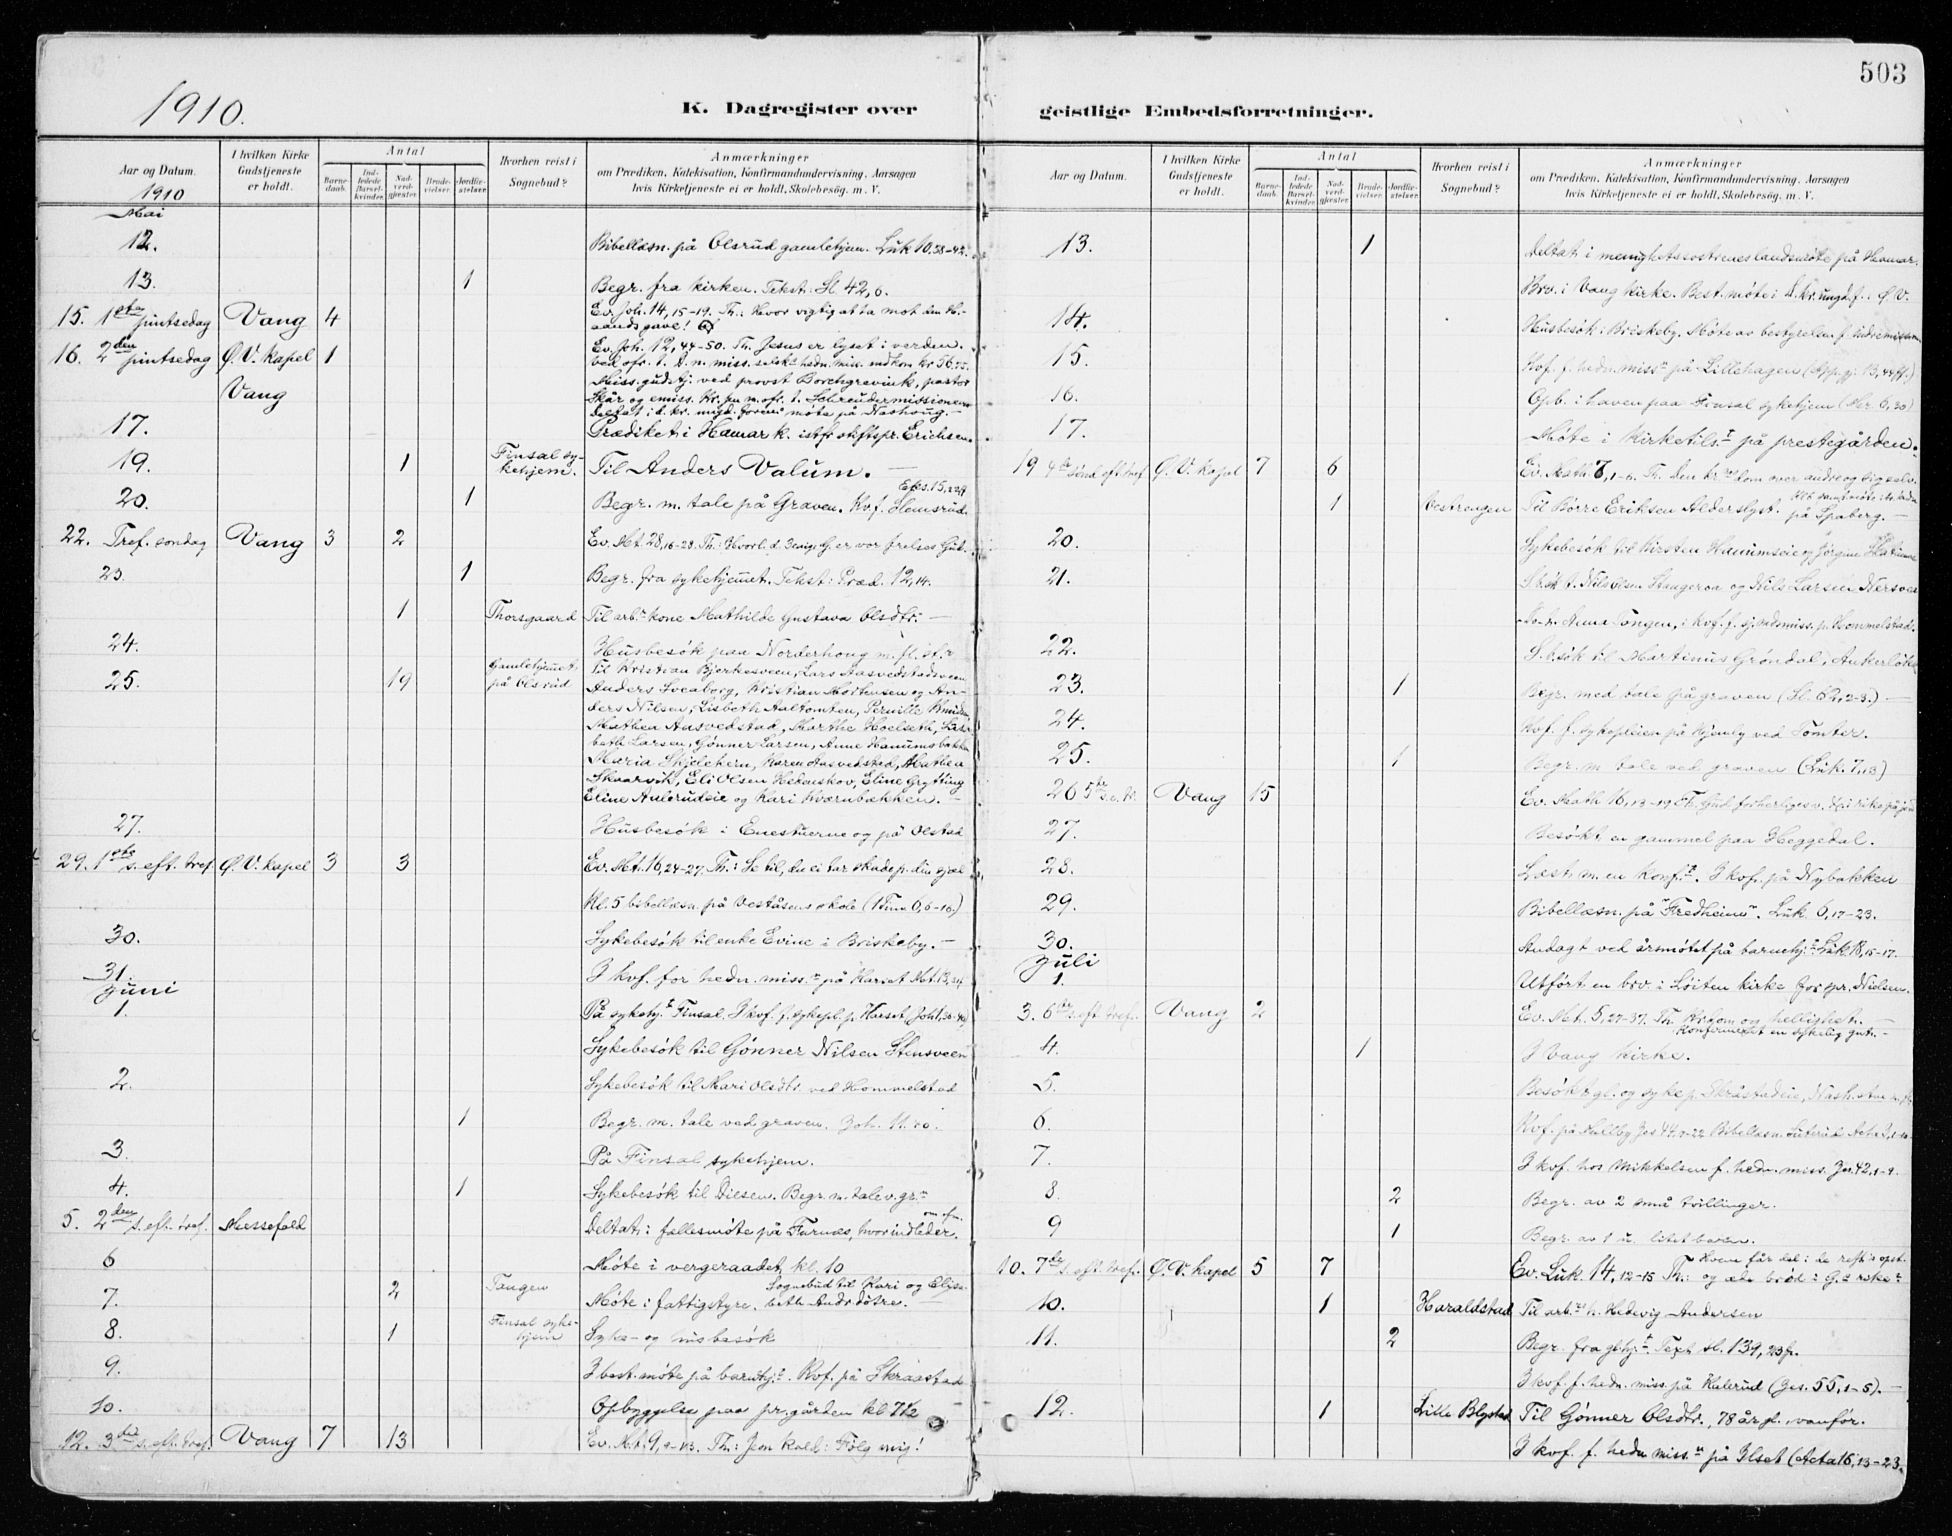 503
1910.
K. Dagregister over geistlige Embedsforretninger.
Aar og Datum.
I hvilken Kirke Gudstjeneste er holdt.
Antal
Barnedaab.
Indledede Barselkvinder.
Nadverdgjester.
Brudevielser.
Jordfæstelser.
Hvorhen reist i Sognebud?
Anmærkninger
om Prædiken, Katekisation, Konfirmandundervisning, Aarsagen
hvis Kirketjeneste ei er holdt, Skolebesøg. m. V.
1910
Mai
12. Bibellæsn. på Olsrud gamlehjem. Luk 10,38-42.
13. 1 Begr. fra kirken. Tekst: Sl. 42,6.
15. 1ste pintsedag Vang 4 Ev. Joh. 14, 15-19. Th.: Hvor vigtig at ta mot den H.
aands gave!
16. 2den pintsedag Ø. V. kapel 1 Ev. Joh. 12, 44-50. Th. Jesus er lyset i verden.
Vang Miss. gudstj. ved provst Borchgrevink, pastor
Skår og emiss.
17. Prædiket i Hamar k. istf. stiftspr. Erichsen.
19. 1 Finsal sykehjem. Til Anders Valum. —
20. 1 Begr. m. tale på Graven. Kvf. Hemsrud.
22. Tref. søndag Vang 3 2 Ev. Mt. 28, 16-28. Th.:
23. 1 Begr. fra sykehjemmet. Tekst: Præd. 12,14.
1 Thorsgaard Til arb. kone Mathilde Gustava Olsdtr. —
24. Husbesøk paa Norderhoug m. fl. st.
25. 19 Gamlehjemmet på Olsrud Til Kristian Bjerkesveen, Lars Aasvedstadsveen
Anders Sveaborg, Kristian Mortensen og An-
ders Nilsen, Lisbeth Aaltomten, Pernille Knudsen
Mathea Aasvedstad, Marthe Hoelseth, Lis-
beth Larsen, Gønner Larsen, Anne Hanumsbakken
Maria Skjølehern, Karen Aasvedstad, Mathea
Skaarvik, Eli Olsen Hedenskov, Eline Grytting
Eline Aulerudeie og Kari Kværnbækken. —
27. Husbesøk i Enestuerne og på Olstad
29. 1ste s. eft. tref. Ø. V. kapel 3 3 Ev. Mt. 16, 24-27. Th.: Se til, du ei tar skade p. din sjæl
Kl. 5 bibellæsn. på Veståsens skole (1 Tim 6,6-16)
30. Sykebesøk til enke Evine i Briskeby. —
31. I kvf. for hedn. miss. på Harset Mt. 13,
Juni
1. På sykehj. Finsal. I kvf. f. sykepl. p. Harset.
Sykebesøk til Gønner Nilsen Stensveen
2. Sykebesøk til Kari Olsdtr. ved Hommelstad
1 Begr. m. tale ved graven. Joh. 11.
3. På Finsal sykehjem.
4. 1 Sykebesøk til Dilsen. Begr. m. tale v. gr.
5. 2den s. eft. tref. Messefald Deltat i fællesmøte på Furnes, hvor indleder.
6 Møte i vergeraadet kl. 10
7. 2 Tangen Møte i fattigstyre. Sognebud til Kari og Elisa-
beth Andr.døtre. —
8. 1 Finsal sykehjem Syke- og husbesøk
9. I best. møte på barnehj. Kvf. på Skraastad
10. Opbyggelse paa pr.gården kl 7½
12. 3die s. eft. tref. Vang 7 13 Ev. Mt. 9, 9-13. Th.: Jesu kald: Følg mig!
Aar og Datum.
I hvilken Kirke Gudstjeneste er holdt.
Antal
Barnedaab.
Indledede Barselkvinder.
Nadverdgjester.
Brudevielser.
Jordfæstelser.
Hvorhen reist i Sognebud?
Anmærkninger
om Prædiken, Katekisation, Konfirmandundervisning, Aarsagen
hvis Kirketjeneste ei er holdt, Skolebesøg. m. V.
13. 1 Deltat i menighetssøstrenes landsmøte på Hamar.
Brv. i Vang kirke. Best. møte i d. kr. ungd. f. Ø. V.
14. Husbesøk i Briskeby. Møte av bestyrelsen f. indremissionen
15. Kvf. f. hedn. miss. på Lillehagen (Ap. gj. 13,44ff.)
16. Opb. i haven paa Finsal sykehjem
17. Møte i kirketils. på prestegården.
19 4de sønd. eft. tref Ø. V. kapel 7 6 Ev. Math 7,1-5. Th. Den kr. dom over andre og sig selv.
1 Vestrengen Til Børre Eriksen Alderslyst. på Spaberg. —
20. Sykebesøk til Kirsten Hanumseie og Jørgine
21. S. bsk t. Nils Olsen Stangeroa og Nils Larsen Nersveen
do. Anna Tongen, i kvf. f. sjømdsmiss. p. Hommelstad.
22. S. bsøk til Martinus Grøndal, Ankerløkken
23. 1 Begr. med tale på graven —
24. Kvf. f. sykepleien på Hjemly ved Tomter.
25. 1 Begr. m. tale ved graven (Luk. 7,13)
26 5te s. e. tr. Vang 15 Ev. Math 16, 13-19
27. Besøkt en gammel paa Heggedal.
28. Læst m. en konf. I kvf. på Nybakken
29. Bibellæsn. på "Fredheim". Luk. 6,17-23.
30. Andagt ved årsmøtet på barnehj. Luk 18,15-17.
Juli
1. Utført en brv. i Løiten kirke for spr. Nielsen.
3. 6te s. eft. tref. Vang 2 Ev. Mt. 5, 27-37. Th. Kr.dom og hellighet. —
Konfirmeret en sykelig gut. —
4. 1 I Vang kirke.
5. Besøkt gl. og syke p. Skråstadeie,
6. Kvf. på Hallby Jes 44. Bibellæsn.
7. I kvf. hos Mikkelsen f. hedn. miss. Jes. 42, 1-9.
8. 2 Begr. av 2 små tvillinger.
9 1 Begr. av 1 u. litet barn.
10. 7de s. eft. tref. Ø. V. kapel 5 7 Ev. Luk. 14, 12-15 Th: Hvem får del i de retf.s opst.
og æte brød i G.s rike?
10. 1 Haraldstad Til arb. h. Hedevig Andersen
11. 2 Begr. fra gbhj. Text sl. 139, 23f.
I kvf. f. hedn. miss. på Hulerud (Jes. 55, 1-5). —
12. 1 Lille Blystad Til Gønner Olsdtr., 78 år gl. vanfør.
I kvf. f. hedn miss. på Ilset (Acta 16, 13-23.